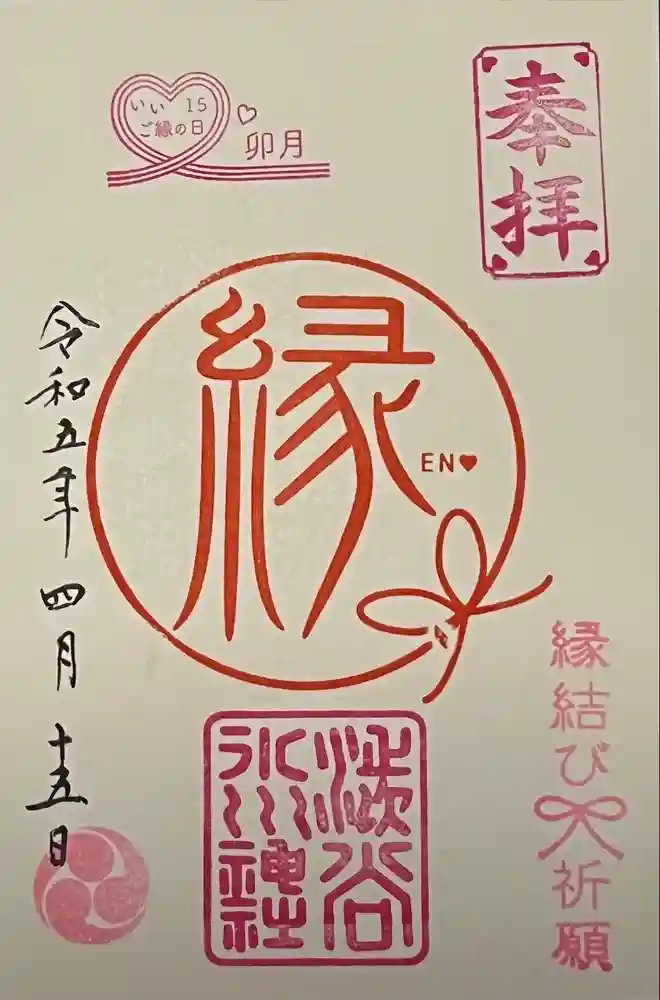 奉拝
いい 15
ご縁の日
卯月
縁
EN
縁結び祈願
渋谷
氷川
神社
令和五年四月十五日